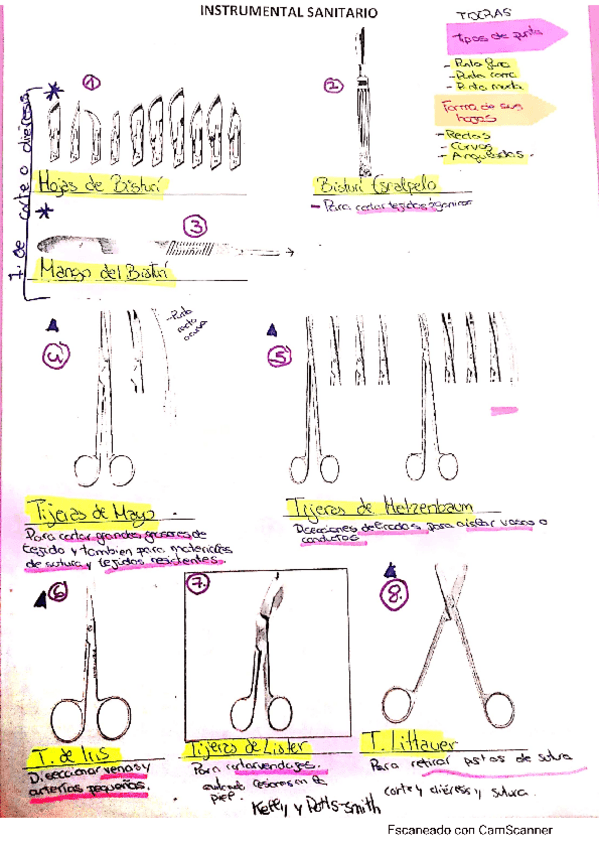 INSTRUMENTAL SANITARIO
TIJERAS
Tipos de punta
- Punta fina
- Punta roma
- Punta mixta
Forma de sus
hojas
- Rectas
- Curvas
- Anguladas.
1. de corte o diéresis
1
Hojas de Bisturí
2
Bisturí Escalpelo
- Para cortar tejidos
3
Mango del Bisturí
4
- Punta
Tijeras de Mayo
Para cortar grandes grosores de
tejido y tambien para materiales
de sutura y tejidos resistentes.
5
Tijeras de Metzenbaum
Disecciones delicadas, para aislar vasos o
conductos.
6
T. de Iris
Diseccionar venas y
arterias pequeñas.
7.
Tijeras de Lister
Para cortar vendajes.
lesiones en la
piel.
Kelly y Potts-Smith
8.
T. Littauer
Para retirar ptos de sutura
corte y diéresis y sutura.
Escaneado con CamScanner